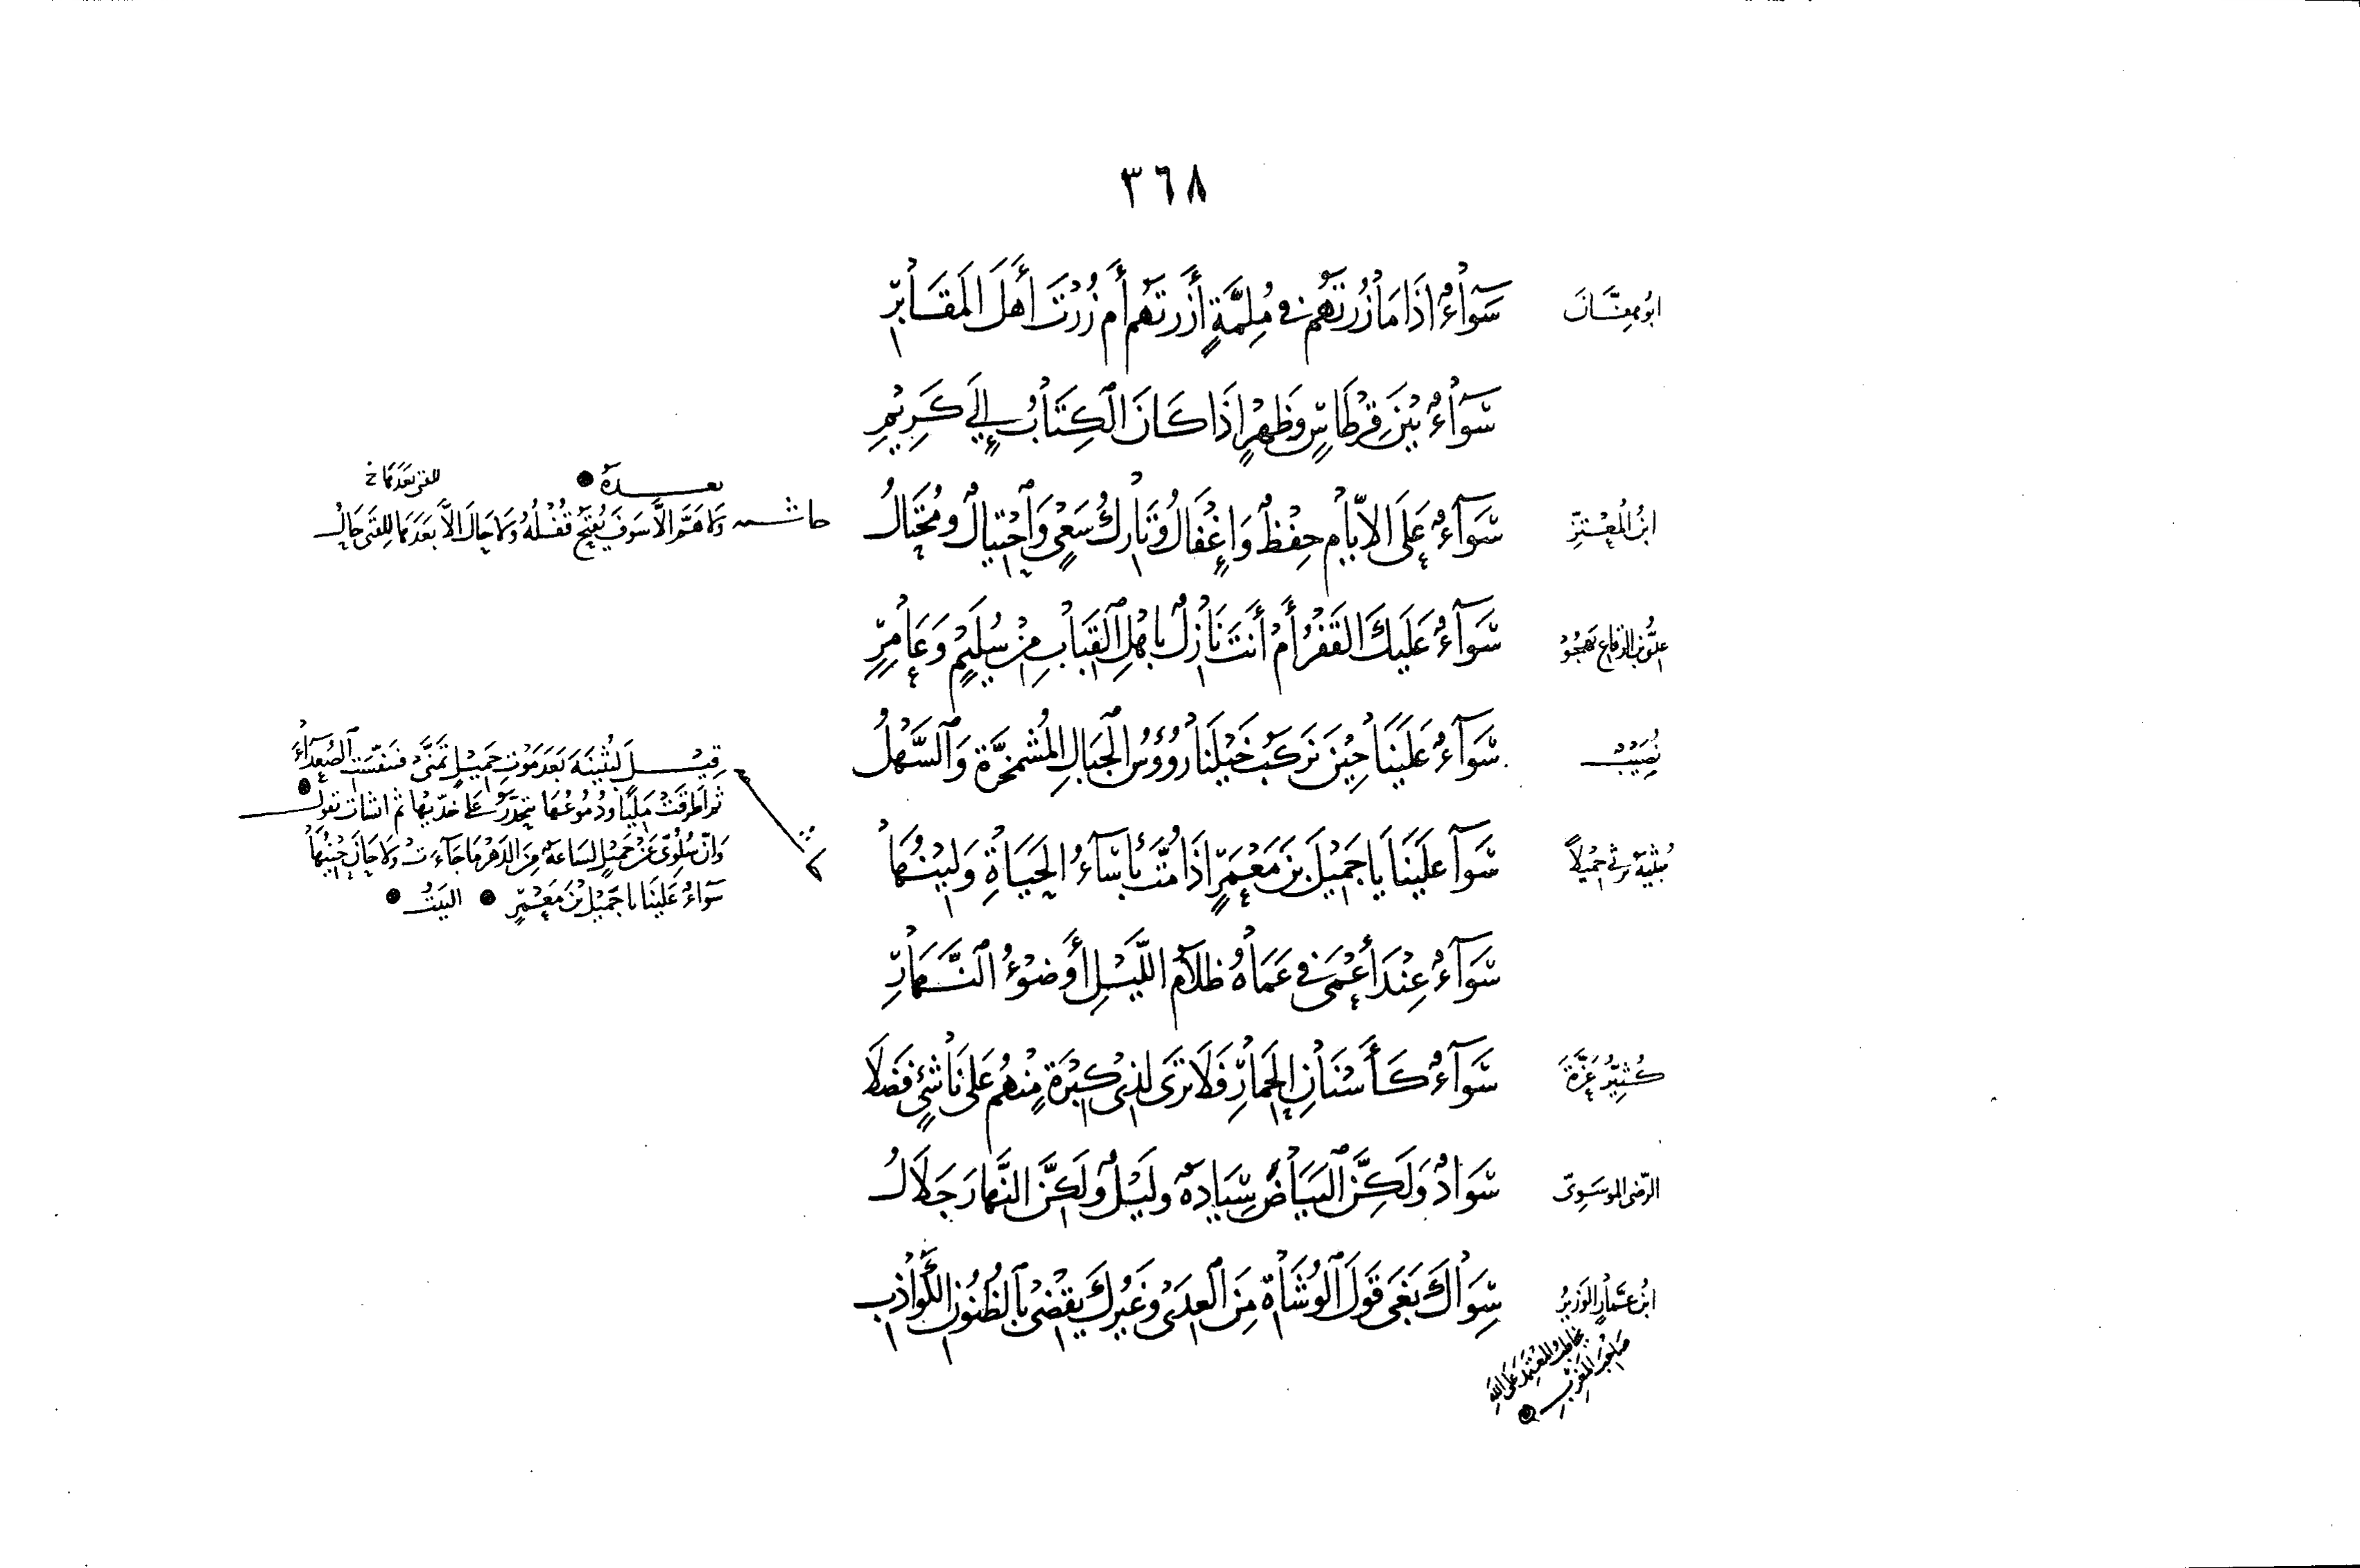 ٣٦٨
سَوَاءٌ اذَا مَا زُرْتَهُمْ فى مُلِمَّةٍ أَزُرْتَهُم أَم زُرْتَ أَهلَ المَقَابرِ
سَوَاءٌ بَيْنَ قِرْطَاسٍ وَظَهرٍ اذَا كَانَ الكِتَابُ إِلى كَرِيْمِ
ابنُ المُعْتزِّ
سَوَآءٌ عَلَى الايّامِ حِفْظٌ وَإِغْفَالُ وَتَارِكُ سَعْىٍ وَاحْتِيالٌ ومُحْتَالُ
حاشيه
بعده
للفتى بعدمَا خ
وَلا هَمَّ الاَّ سَوفَ يُفتَحُ قُفْلُهُ وَلا حَالَ الاَّ بَعدَهَا لِلفَتَى حَالُ
يَهجُوْ
سَوَآءٌ عَلَيكَ القَفْرُ أَمْ أَنتَ نَازِلٌ بِاهْلِ القِبَابِ مِنْ سُلَيْمٍ وَعَامِرِ
نُصَيْبْ
سَوَآءٌ عَلَينَا حِيْنَ نَركَبُ خَيْلَنَا رُؤُوسُ الجِبَالِ المُشمَخِرَّة وَالسَّهْلُ
بُثينَة ترثى جَمِيْلاً
سَوَآ عَلَينَا يَا جَمِيْلَ بنَ مَعْمَرٍ اذَا مُتَّ بَأسَآءُ الحَيَاةِ وَلِيْنُهَا
قِيْلَ لبُثينَةَ بَعدَ مَوْتِ جَمِيْلٍ تمَنَّى فَتَنفّسَتِ الصُعَدآءَ
ثم اَطرَقَتْ مَلِيًّا وَدُمُوعُهَا تتَحَدَّرُ عَلى خدّيهَا ثم انشات تقول
وَانّ سُلُوِّى عَنْ جَمِيْلٍ لسَاعَةٌ مِنَ الدَهْرِ مَا جَآءَتْ وَلا حَانَ حِيْنُهَا
سَوَآءٌ عَلَينَا يا جَمِيْلَ بْنَ مَعْمَرٍ البَيتُ
سَوَآءٌ عِنْدَ أَعْمَى فى عَمَاهُ ظَلاَمُ اللَّيْلِ أَو ضَوْءُ النَّهَارِ
كُثيِّرُ عَزَّةَ
سَوَآءٌ كَأَسْنَانِ الحِمَارِ فَلَا تَرَى لذِى كَبْرَةٍ مِنْهُم عَلى نَاشئٍ فَضلَا
الرّضى الموسَوِىّ
سَوَادٌ وَلَكِنَّ البَيَاضَ سِيَادهٌ وَلَيْلٌ وَلَكِنَّ النَّهارَ جَلَالُ
ابنُ عَمّارٍ الوَزيرُ
يخاطبُ المعْتمِدَ عَلى اللهِ
صَاحِبَ المَغْربِ
سِوَاكَ يَعَى قَولَ الوُشَاةِ مِنَ العِدَى وَغَيرُكَ يَقْضِى بالظُنُونِ الكَوَاذِبِ